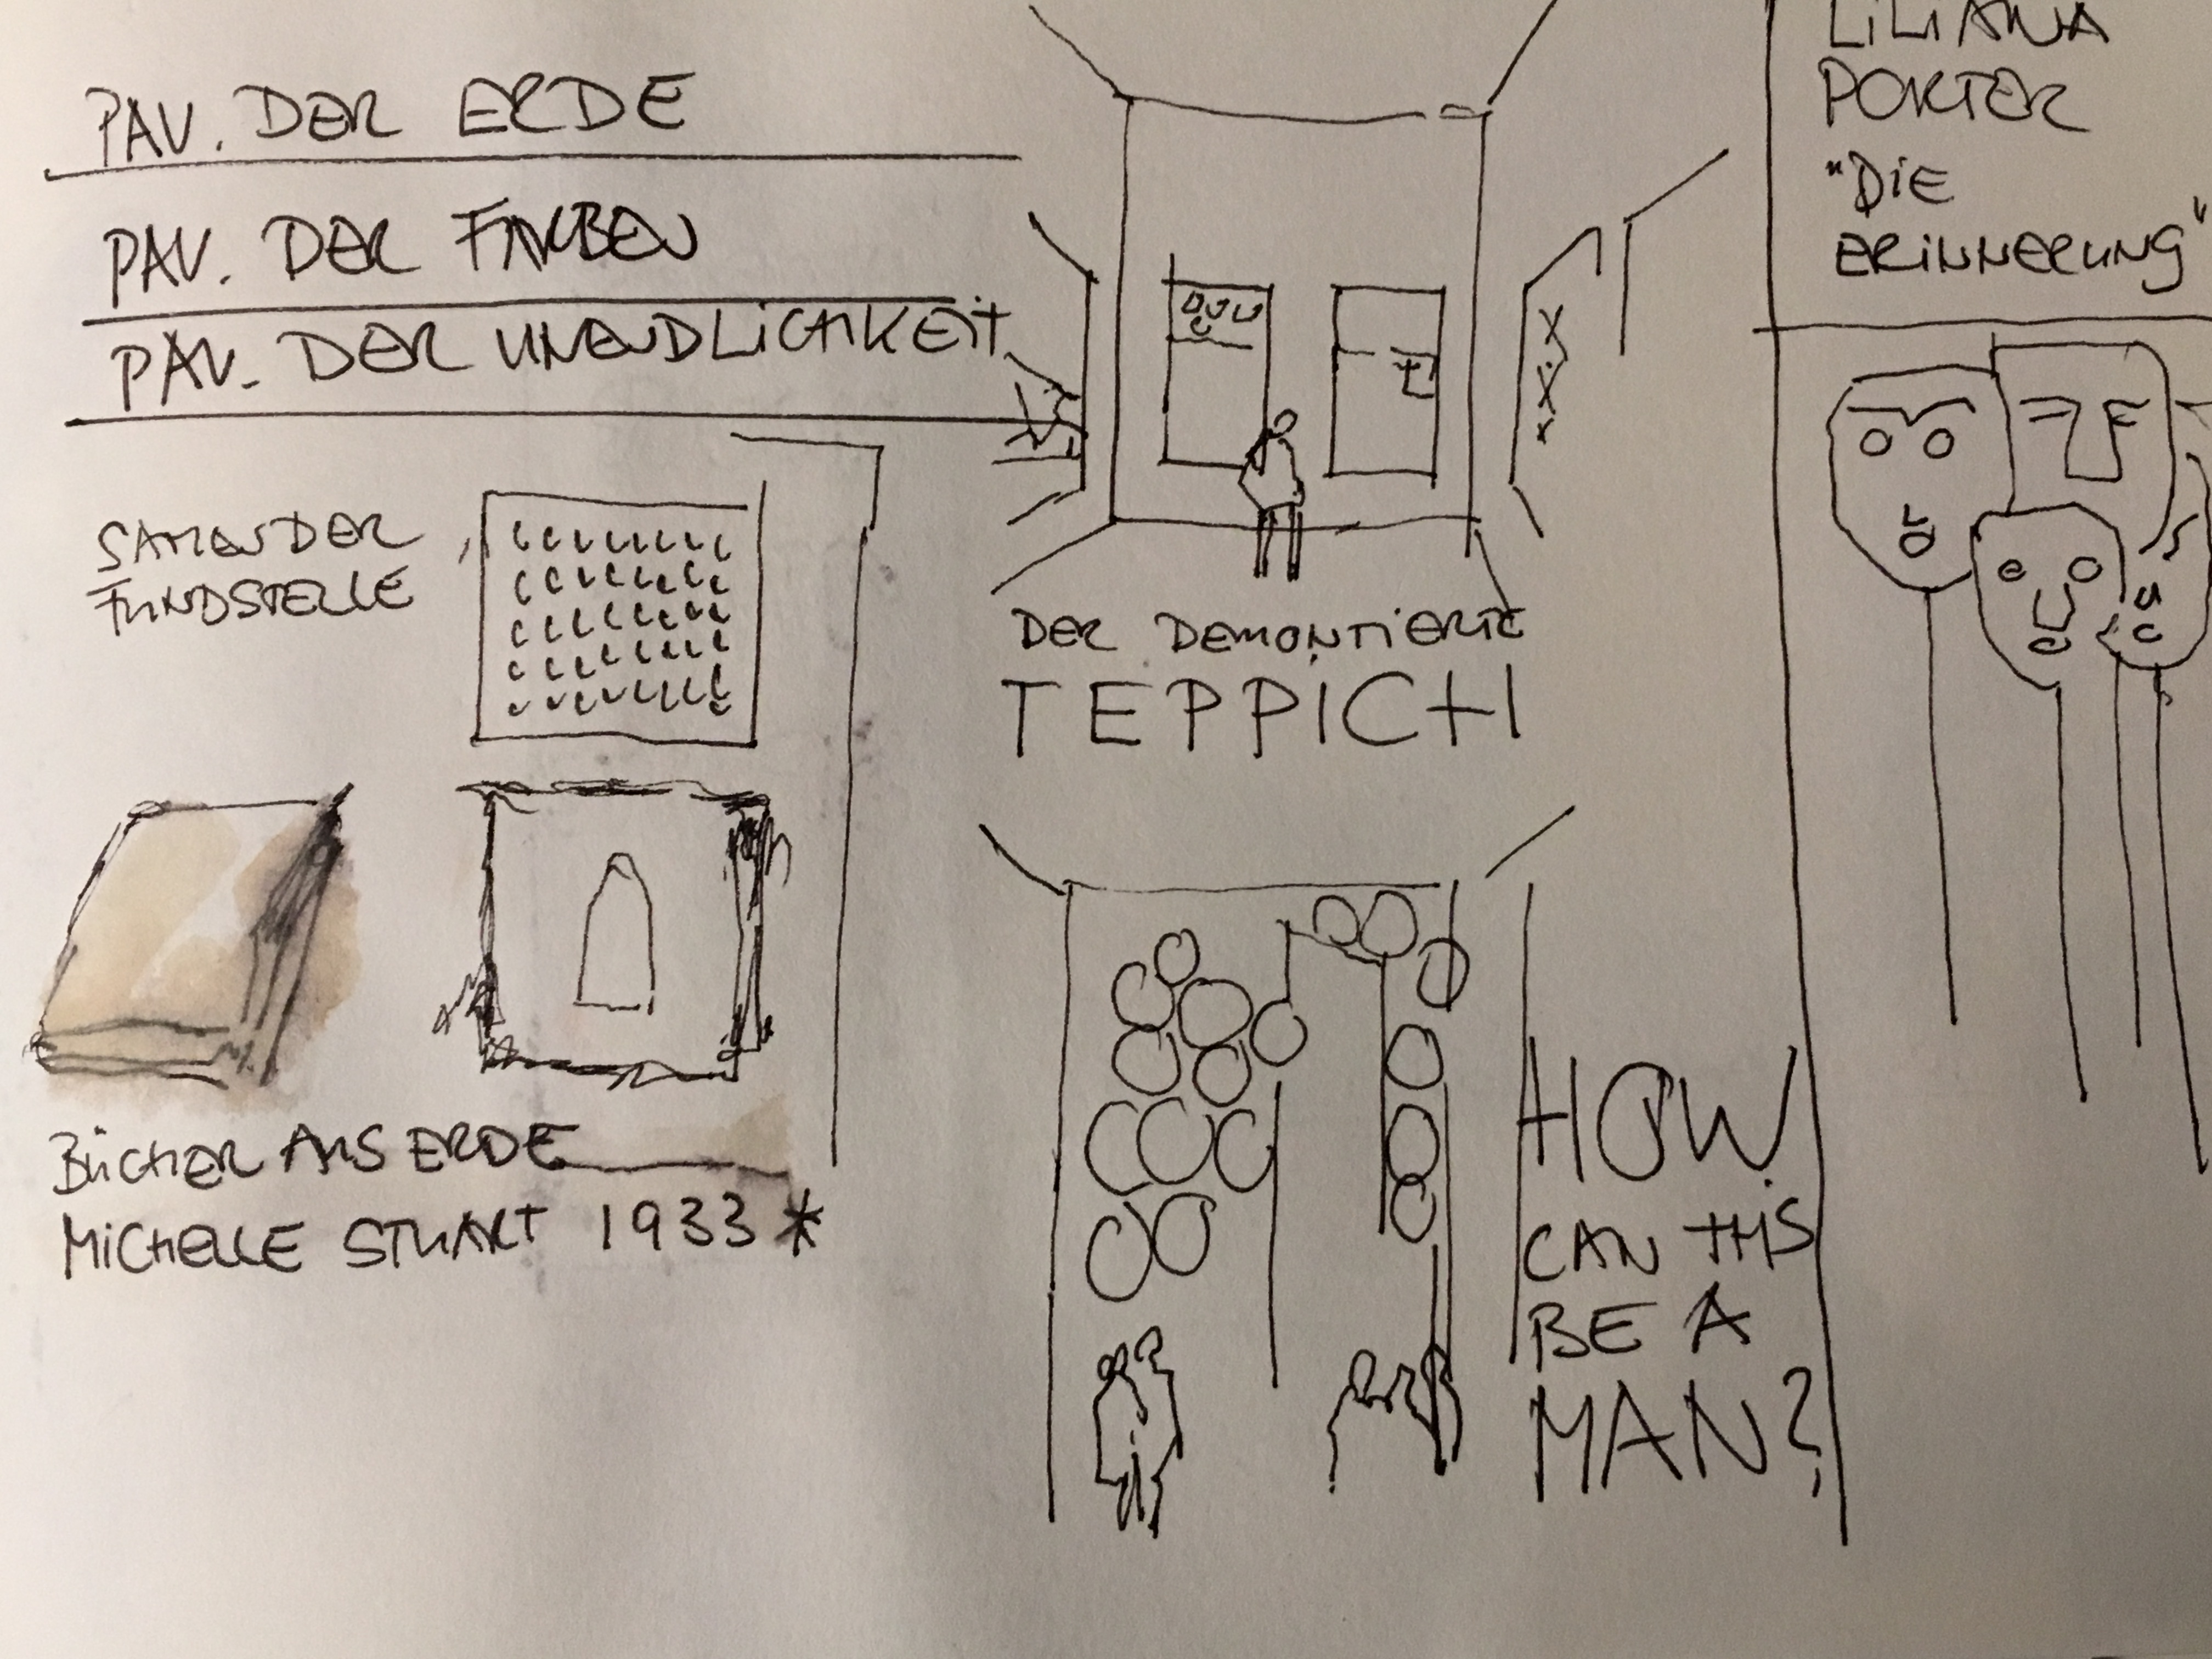 PAV. DER ERDE
PAV. DER FARBEN
PAV. DER UNENDLICHKEIT
SAMEN DER
FUNDSTELLE
BÜCHER AUS ERDE
MICHELLE STUART 1933*
DER DEMONTIERTE
TEPPICH
HOW
CAN THIS
BE A
MAN?
LILIANA
PORTER
"DIE
ERINNERUNG"